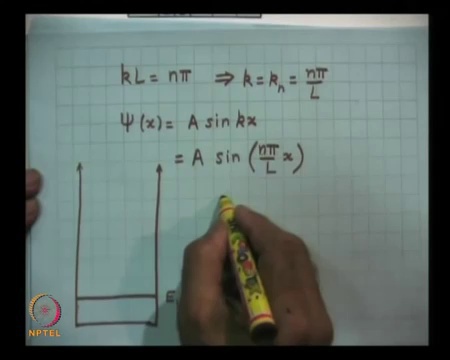 kL = nπ ⇒ k = kₙ = nπ/L
Ψ(x) = A sin kx
= A sin (nπ/L x)
E
NPTEL